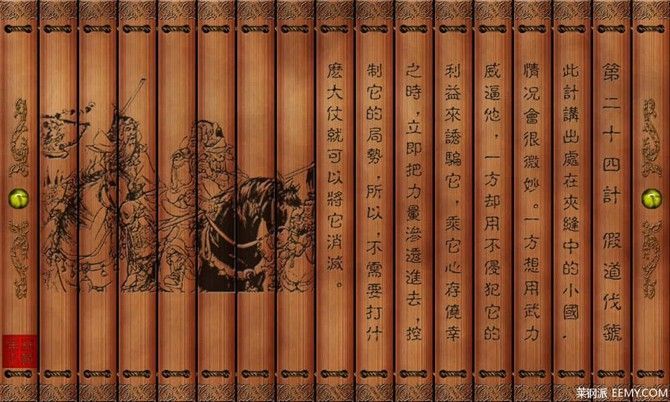 第二十四計 假道伐虢
此計講出處在夾縫中的小國，
情況會很微妙。一方想用武力
威逼他，一方却用不侵犯它的
利益來誘騙它，乘它心存僥幸
之時，立即把力量滲透進去，控
制它的局勢，所以，不需要打什
麽大仗就可以將它消滅。
莱钢派 EEMY.COM